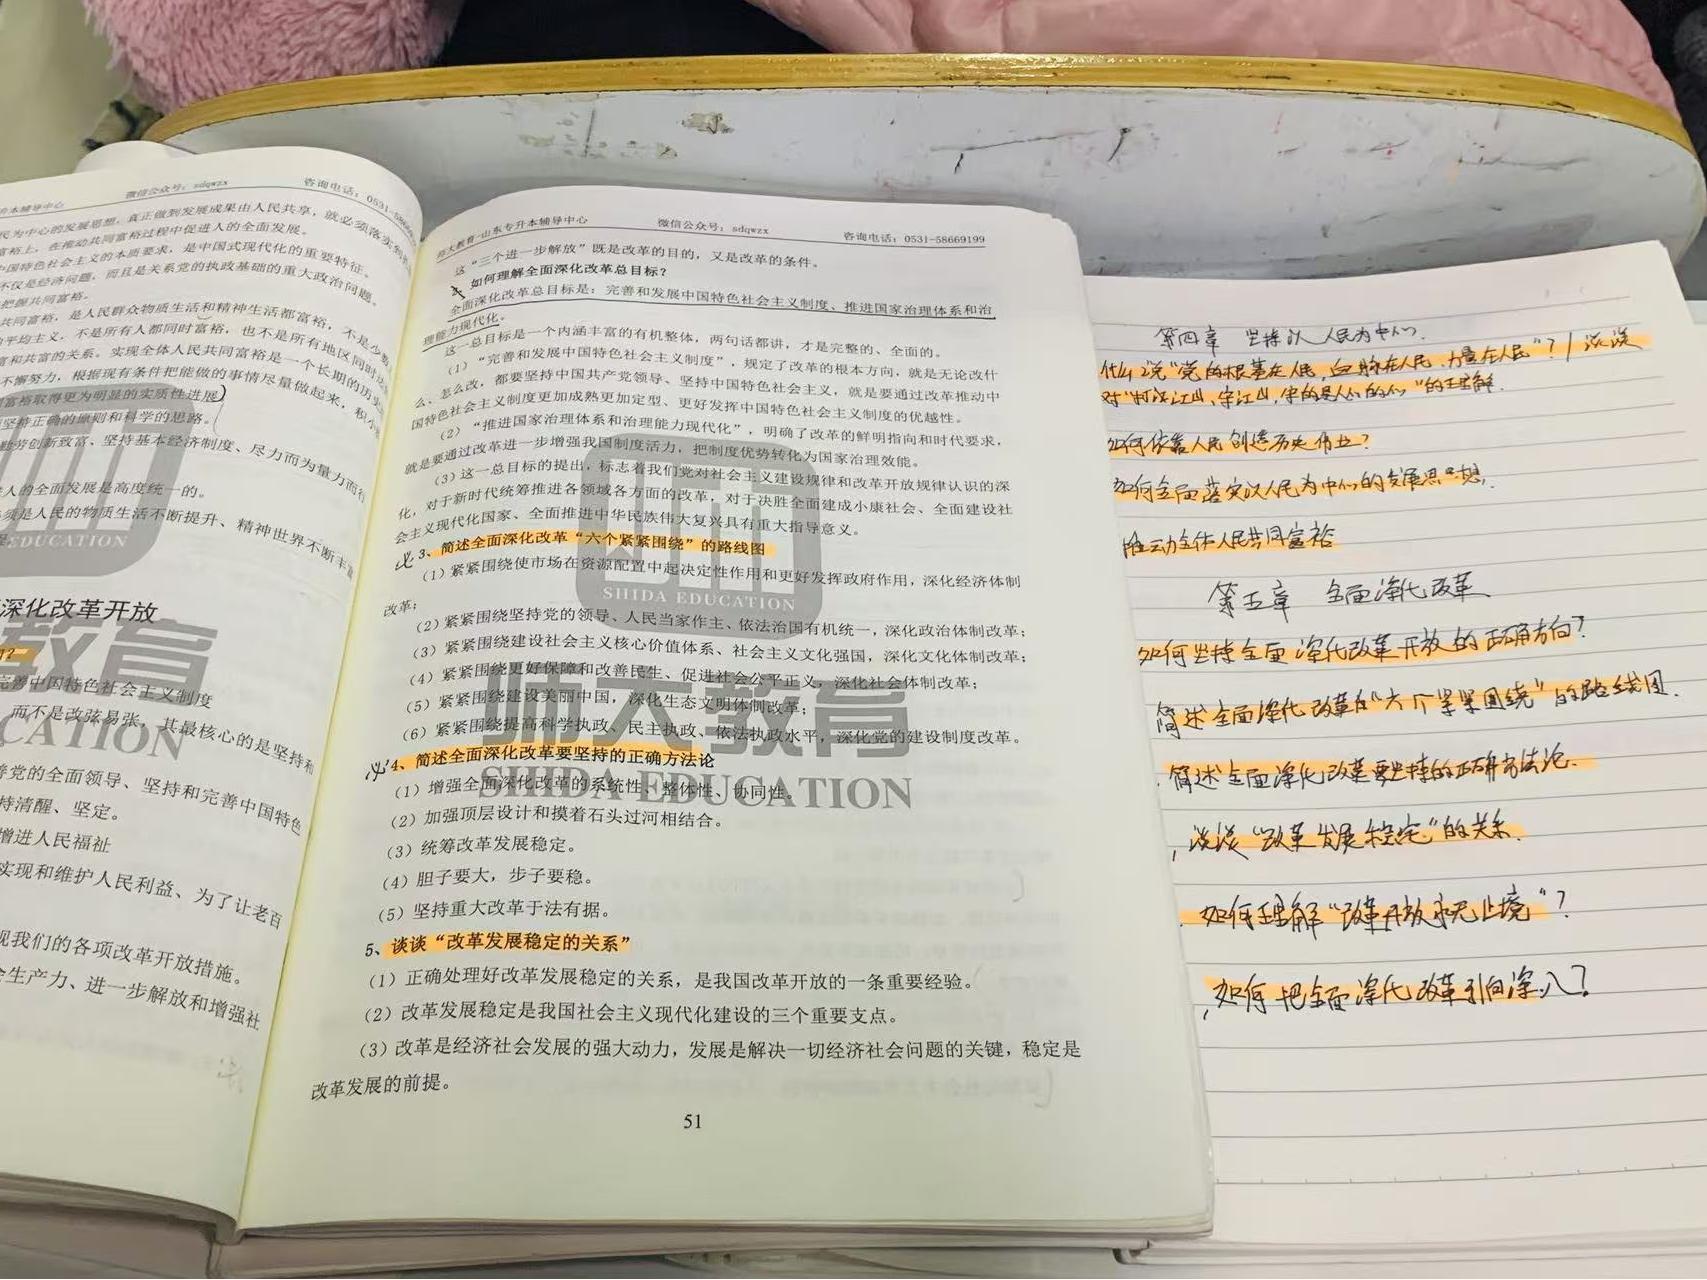 升本辅导中心
微信公众号：sdqwzx
咨询电话：0531-58669
民为中心的发展思想，真正做到发展成果由人民共享，就必须落实到共
富裕上，在推动共同富裕过程中促进人的全面发展。
中国特色社会主义的本质要求，是中国式现代化的重要特征。
不仅是经济问题，而且是关系党的执政基础的重大政治问题。
把握共同富裕。
共同富裕，是人民群众物质生活和精神生活都富裕，不是少数
平均主义，不是所有人都同时富裕，也不是所有地区同时达
富和共富的关系。实现全体人民共同富裕是一个长期的历史
不懈努力，根据现有条件把能做的事情尽量做起来，积小
富裕取得更为明显的实质性进展
坚持正确的原则和科学的思路。
勤劳创新致富、坚持基本经济制度、尽力而为量力而行
人的全面发展是高度统一的。
须是人民的物质生活不断提升、精神世界不断丰富
EDUCATION
深化改革开放
教育
完善中国特色社会主义制度
，而不是改弦易张，其最核心的是坚持和
CATION
善党的全面领导、坚持和完善中国特色
持清醒、坚定。
增进人民福祉
实现和维护人民利益、为了让老百
现我们的各项改革开放措施。
会生产力、进一步解放和增强社
师大教育·山东专升本辅导中心
微信公众号：sdqwzx
咨询电话：0531-58669199
这“三个进一步解放”既是改革的目的，又是改革的条件。
2、如何理解全面深化改革总目标？
全面深化改革总目标是：完善和发展中国特色社会主义制度、推进国家治理体系和治
理能力现代化。
这一总目标是一个内涵丰富的有机整体，两句话都讲，才是完整的、全面的。
（1）“完善和发展中国特色社会主义制度”，规定了改革的根本方向，就是无论改什
么、怎么改，都要坚持中国共产党领导、坚持中国特色社会主义，就是要通过改革推动中
国特色社会主义制度更加成熟更加定型、更好发挥中国特色社会主义制度的优越性。
（2）“推进国家治理体系和治理能力现代化”，明确了改革的鲜明指向和时代要求，
就是要通过改革进一步增强我国制度活力，把制度优势转化为国家治理效能。
（3）这一总目标的提出，标志着我们党对社会主义建设规律和改革开放规律认识的深
化，对于新时代统筹推进各领域各方面的改革，对于决胜全面建成小康社会、全面建设社
会主义现代化国家、全面推进中华民族伟大复兴具有重大指导意义。
必 3、简述全面深化改革“六个紧紧围绕”的路线图
（1）紧紧围绕使市场在资源配置中起决定性作用和更好发挥政府作用，深化经济体制
改革；
SHIDA EDUCATION
（2）紧紧围绕坚持党的领导、人民当家作主、依法治国有机统一，深化政治体制改革；
（3）紧紧围绕建设社会主义核心价值体系、社会主义文化强国，深化文化体制改革；
（4）紧紧围绕更好保障和改善民生、促进社会公平正义，深化社会体制改革；
（5）紧紧围绕建设美丽中国，深化生态文明体制改革；
（6）紧紧围绕提高科学执政、民主执政、依法执政水平，深化党的建设制度改革。
师大教育
SHIDA EDUCATION
必 4、简述全面深化改革要坚持的正确方法论
（1）增强全面深化改革的系统性、整体性、协同性。
（2）加强顶层设计和摸着石头过河相结合。
（3）统筹改革发展稳定。
（4）胆子要大，步子要稳。
（5）坚持重大改革于法有据。
5、谈谈“改革发展稳定的关系”
（1）正确处理好改革发展稳定的关系，是我国改革开放的一条重要经验。
（2）改革发展稳定是我国社会主义现代化建设的三个重要支点。
（3）改革是经济社会发展的强大动力，发展是解决一切经济社会问题的关键，稳定是
改革发展的前提。
51
第四章 坚持以人民为中心.
什么说“党的根基在人民，血脉在人民，力量在人民”？/谈谈
对“打江山，守江山，守的是人民的心”的理解.
如何依靠人民创造历史伟业？
如何全面落实以人民为中心的发展思想.
推动全体人民共同富裕
第五章 全面深化改革
如何坚持全面深化改革开放的正确方向？
简述全面深化改革的“六个紧紧围绕”的路线图.
简述全面深化改革要坚持的正确方法论.
谈谈“改革发展稳定”的关系.
如何理解“改革开放永无止境”？
如何把全面深化改革引向深入？